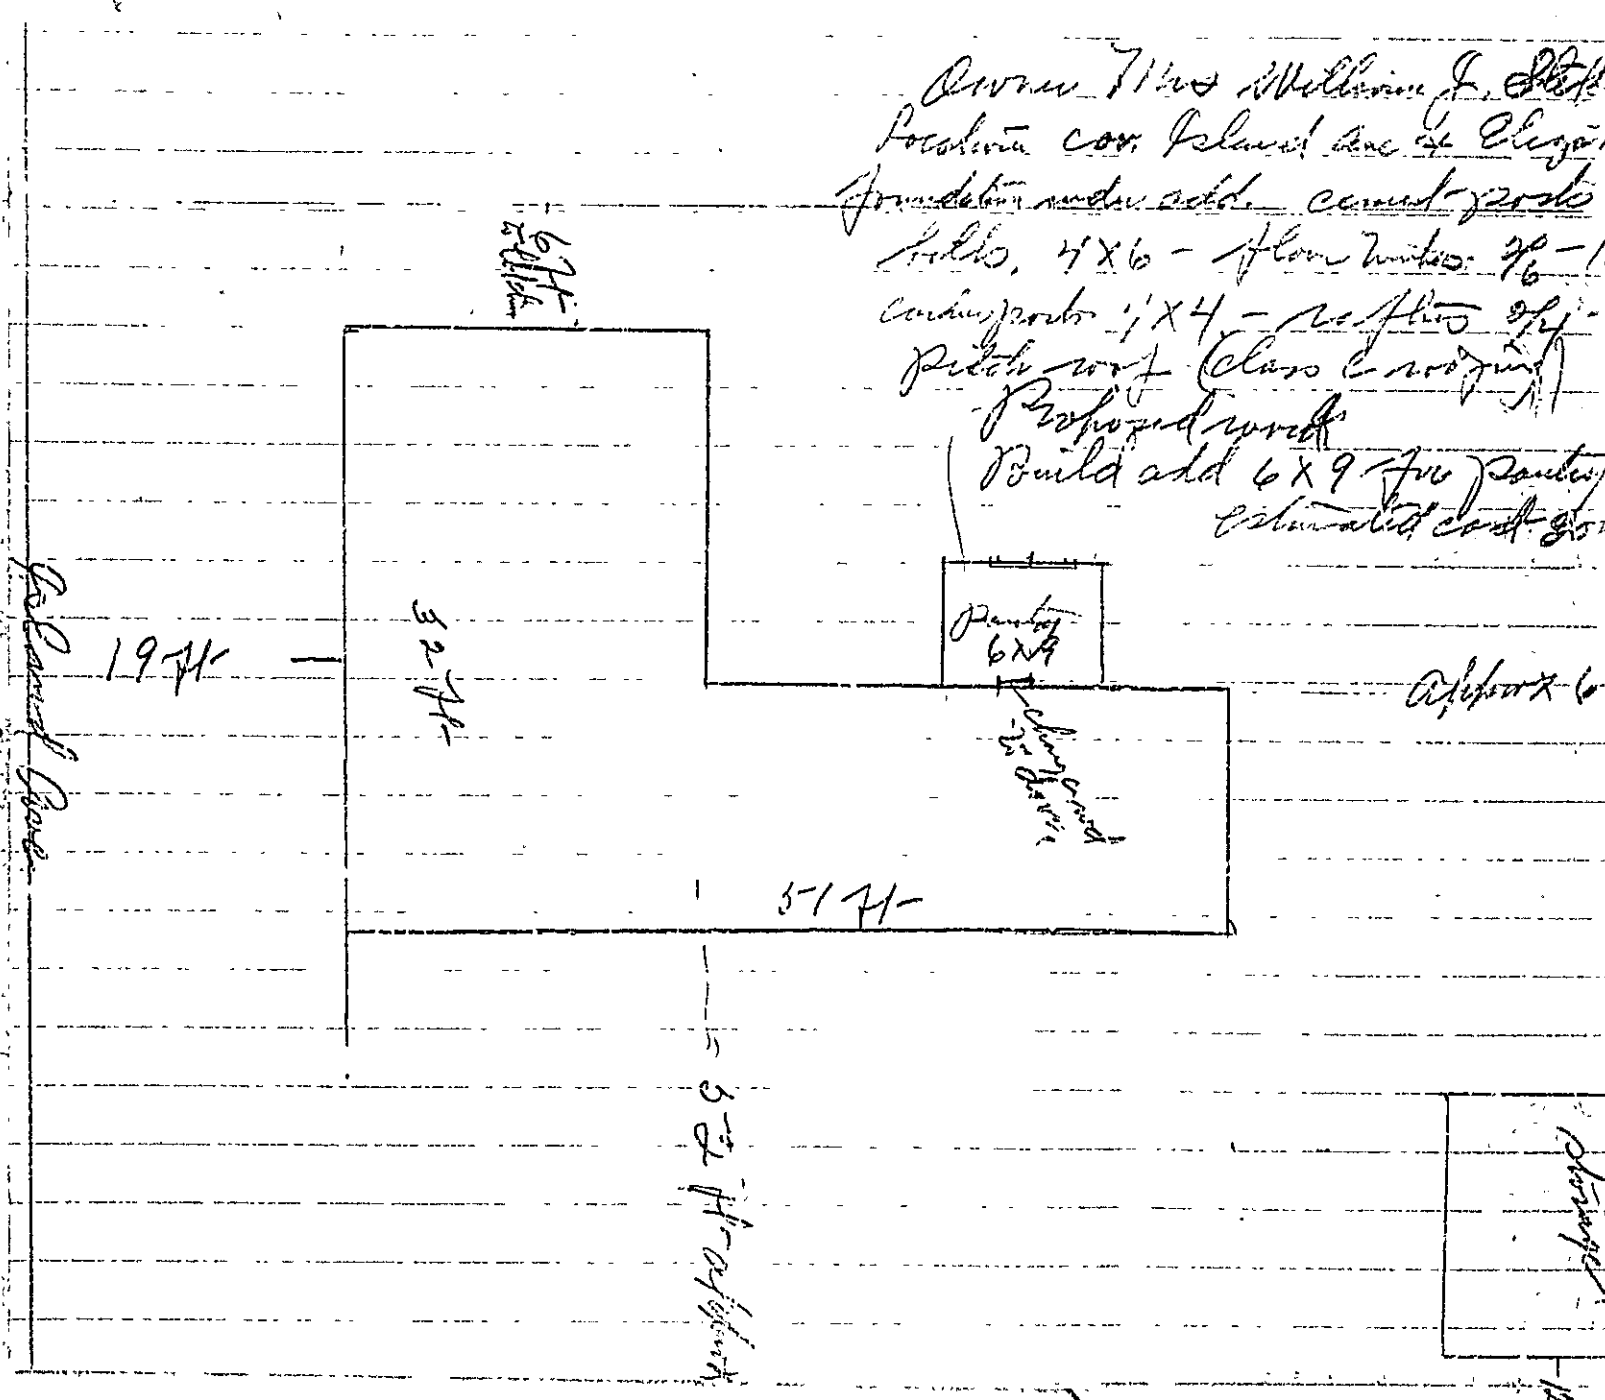 Owner Mrs William J.
Location cor. Island ave &
foundation under add. cement posts
sills, 4x6 - floor timbers 2/6 -
corner posts 4x4 - rafters 2/4 -
pitch roof (Class C roofing)
Proposed work
Build add 6x9 for pantry
estimated cost
6 ft
to lot line
Island Ave
19 ft
32 ft
pantry
6x9
approx 6
change wind
to door
51 ft
52 ft approx
storage